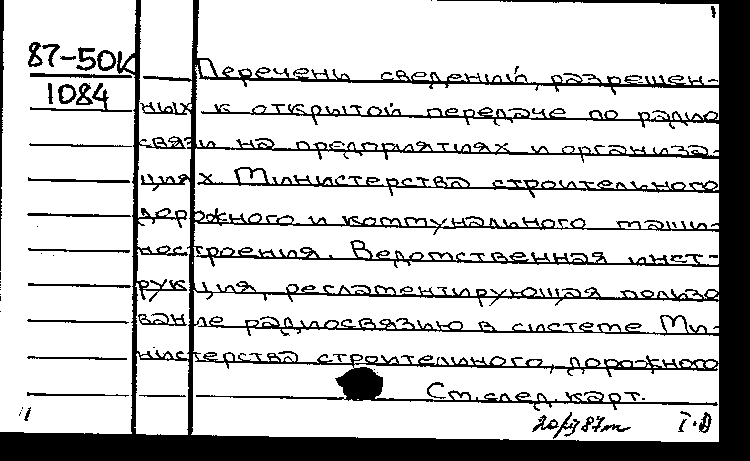 1
87-50К
1084
Перечень сведений, разрешен-
ных к открытой передаче по радио
связи на предприятиях и организа-
циях Министерства строительного
дорожного и коммунального маши-
ностроения. Ведомственная инст-
рукция, регламентирующая пользо
вание радиосвязью в системе Ми-
нистерства строительного, дорожного
См.след.карт.